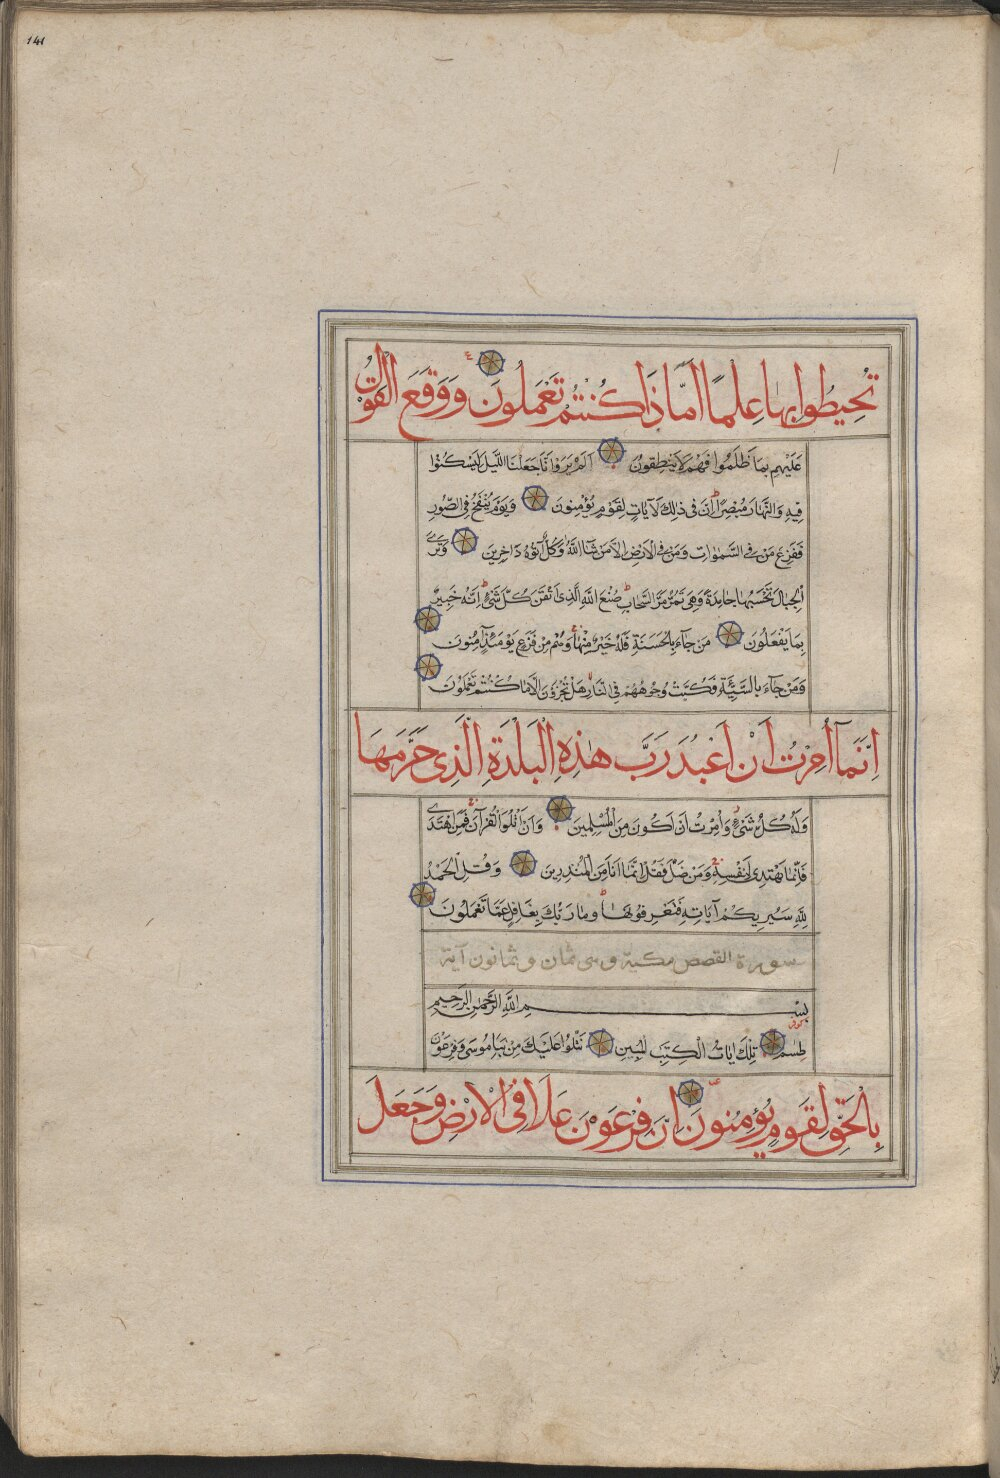 141
تُحِيطُوا بِهَا عِلْمًا اَمَّا ذَا كُنْتُمْ تَعْمَلُونَ وَوَقَعَ الْقَوْلُ
عَلَيْهِمْ بِمَا ظَلَمُوا فَهُمْ لَا يَنْطِقُونَ اَلَمْ يَرَوْا اَنَّا جَعَلْنَا اللَّيْلَ لِيَسْكُنُوا
فِيهِ وَالنَّهَارَ مُبْصِرًا اِنَّ فِى ذٰلِكَ لَآيَاتٍ لِقَوْمٍ يُؤْمِنُونَ وَيَوْمَ يُنْفَخُ فِى الصُّورِ
فَفَزِعَ مَنْ فِى السَّمٰوَاتِ وَمَنْ فِى الْاَرْضِ اِلَّا مَنْ شَآءَ اللّٰهُ وَكُلٌّ اَتَوْهُ دَاخِرِينَ وَتَرَى
الْجِبَالَ تَحْسَبُهَا جَامِدَةً وَهِىَ تَمُرُّ مَرَّ السَّحَابِ صُنْعَ اللّٰهِ الَّذِى اَتْقَنَ كُلَّ شَىْءٍ اِنَّهُ خَبِيرٌ
بِمَا يَفْعَلُونَ مَنْ جَآءَ بِالْحَسَنَةِ فَلَهُ خَيْرٌ مِنْهَا وَهُمْ مِنْ فَزَعٍ يَوْمَئِذٍ آمِنُونَ
وَمَنْ جَآءَ بِالسَّيِّئَةِ فَكُبَّتْ وُجُوهُهُمْ فِى النَّارِ هَلْ تُجْزَوْنَ اِلَّا مَا كُنْتُمْ تَعْمَلُونَ
اِنَّمَآ اُمِرْتُ اَنْ اَعْبُدَ رَبَّ هٰذِهِ الْبَلْدَةِ الَّذِى حَرَّمَهَا
وَلَهُ كُلُّ شَىْءٍ وَاُمِرْتُ اَنْ اَكُونَ مِنَ الْمُسْلِمِينَ وَاَنْ اَتْلُوَا الْقُرْآنَ فَمَنِ اهْتَدَى
فَاِنَّمَا يَهْتَدِى لِنَفْسِهِ وَمَنْ ضَلَّ فَقُلْ اِنَّمَا اَنَا مِنَ الْمُنْذِرِينَ وَقُلِ الْحَمْدُ
لِلّٰهِ سَيُرِيكُمْ آيَاتِهِ فَتَعْرِفُونَهَا وَمَا رَبُّكَ بِغَافِلٍ عَمَّا تَعْمَلُونَ
سورة القصص مكية وهى ثمان وثمانون آية
بِسْمِ اللّٰهِ الرَّحْمٰنِ الرَّحِيمِ
طسم تِلْكَ اٰيَاتُ الْكِتٰبِ الْمُبِينِ نَتْلُوا عَلَيْكَ مِنْ نَبَاِ مُوسٰى وَفِرْعَوْنَ
بِالْحَقِّ لِقَوْمٍ يُؤْمِنُونَ اِنَّ فِرْعَوْنَ عَلَا فِى الْاَرْضِ وَجَعَلَ